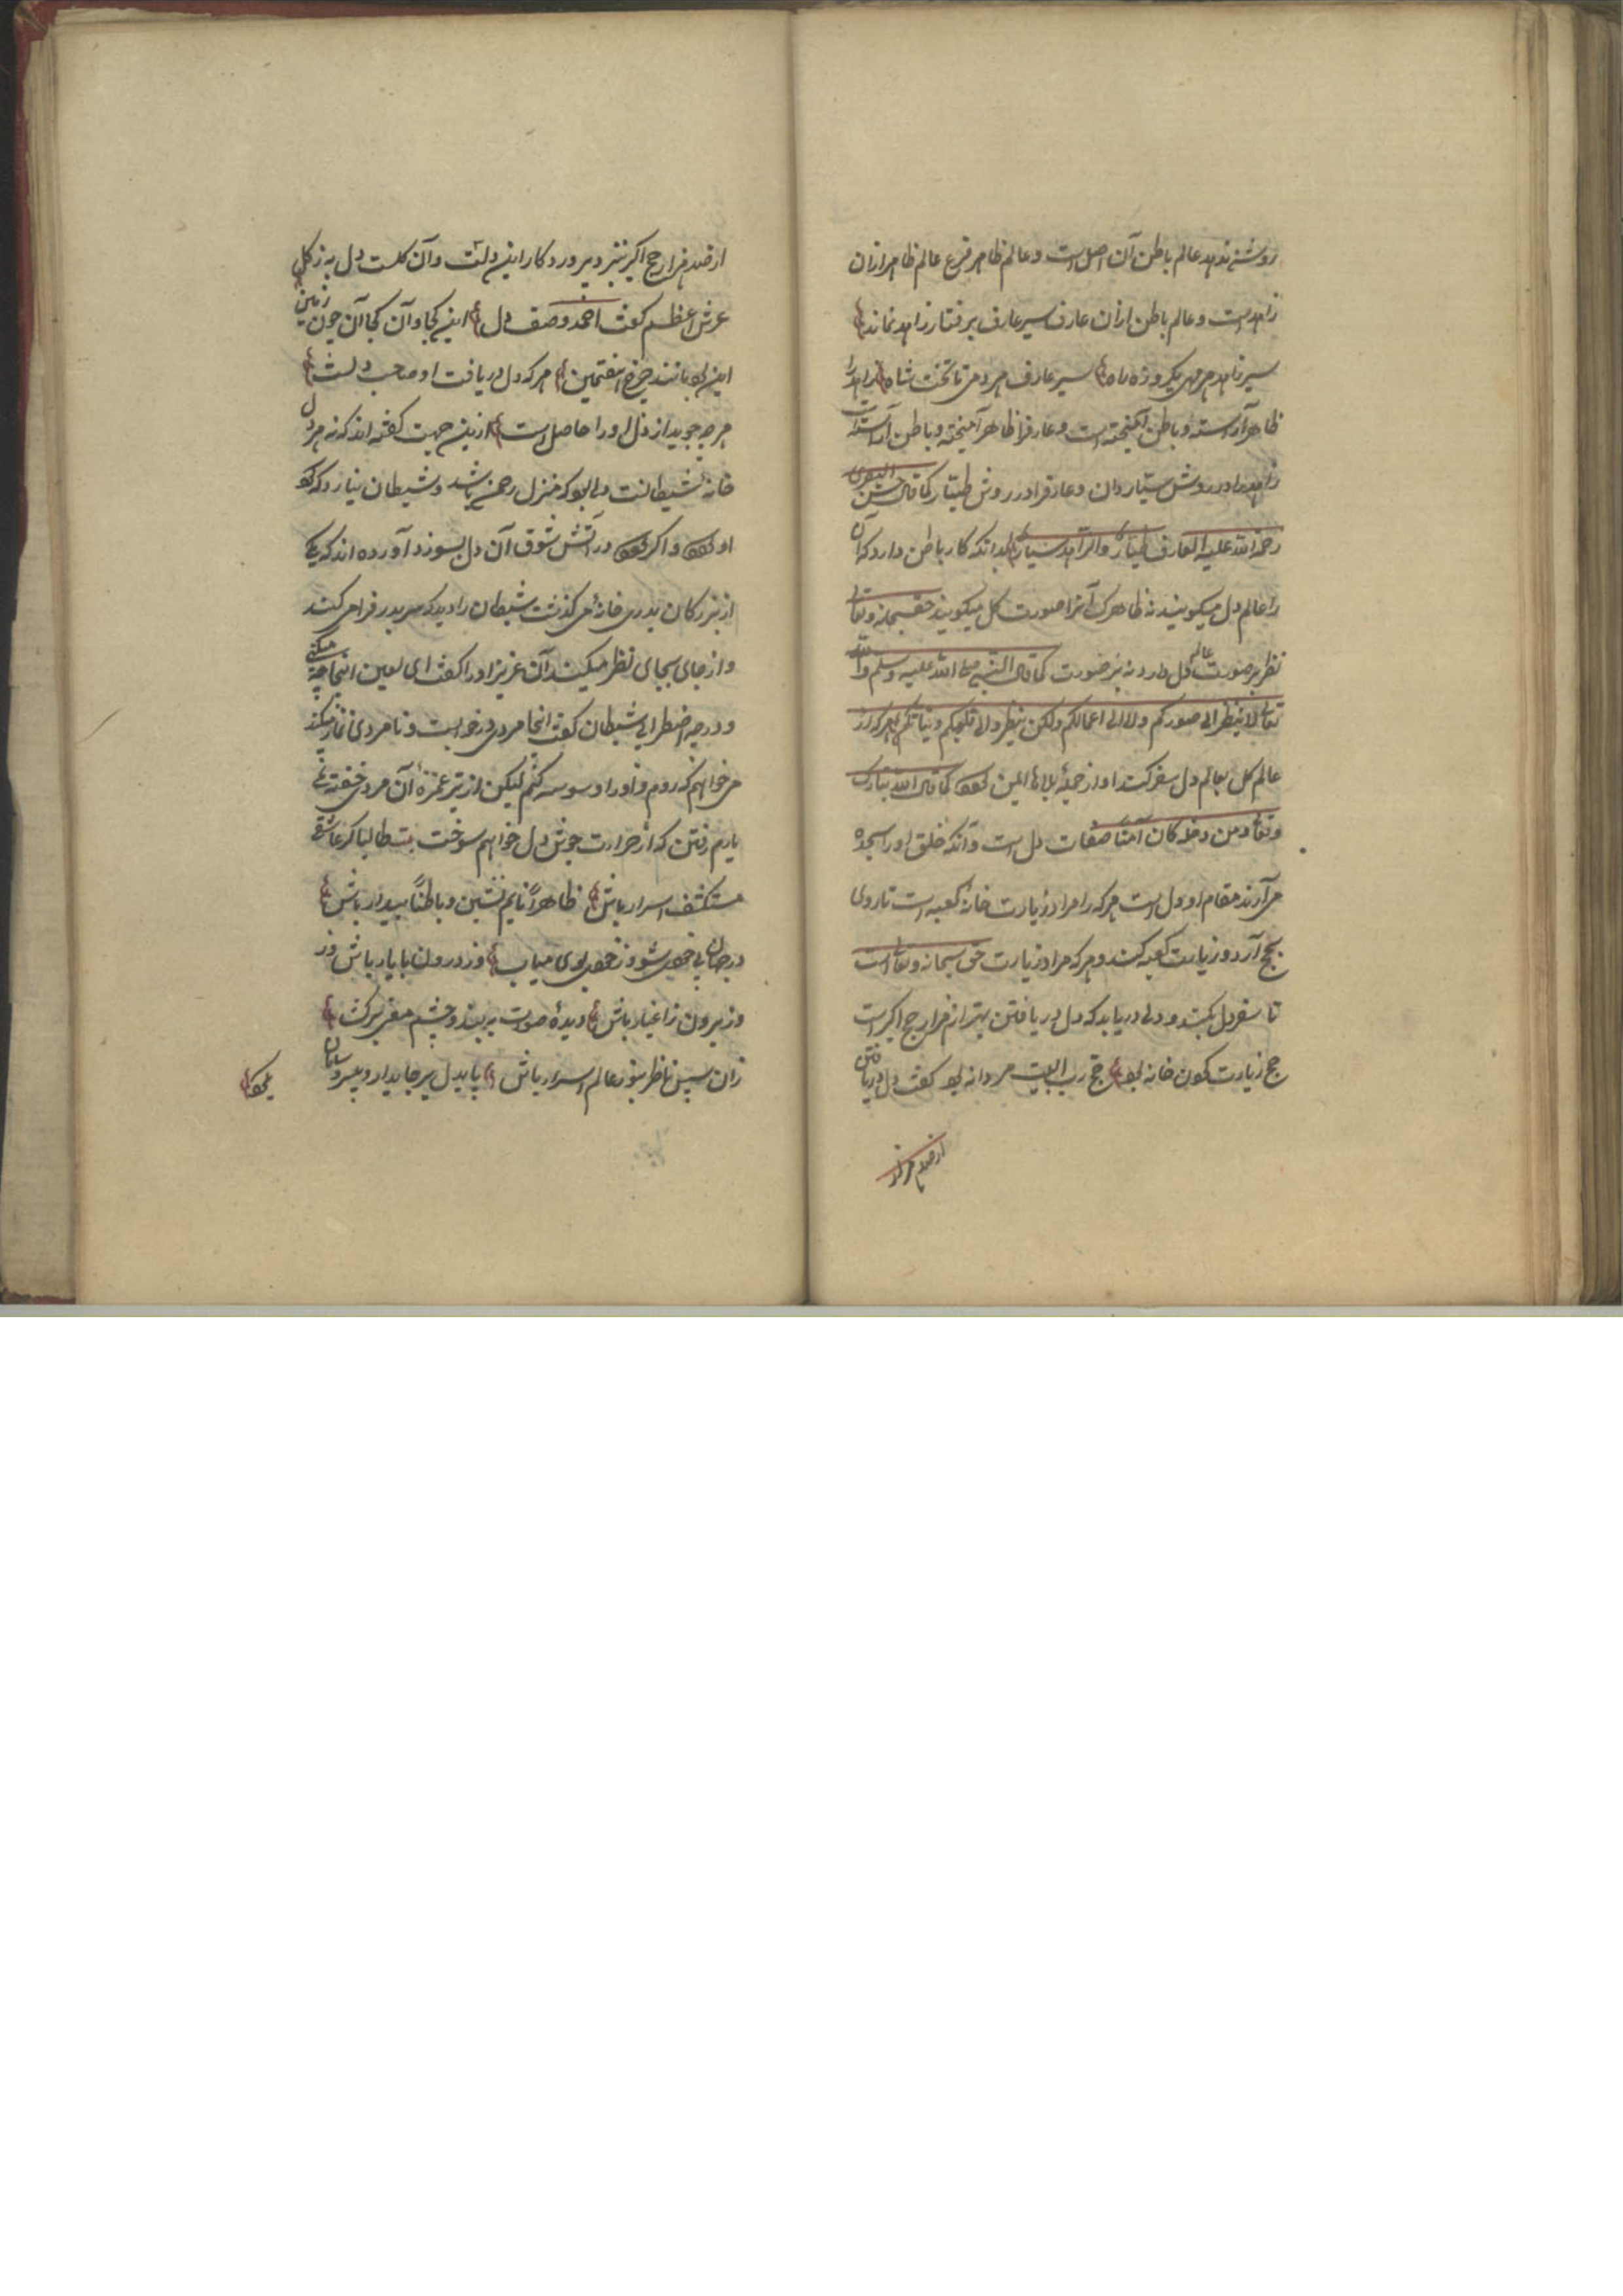 روشنی ندهد عالم باطن آن اصل است و عالم ظاهر فرع عالم ظاهر ازان
زاهد است و عالم باطن ازان عارف سیر عارف برفتار زاهد نماند
سیر زاهد هر مهی یکروزه راه سیر عارف هر دمی تا تخت شاه زاهد را
ظاهر آراسته و باطن آمیخته است و عارفرا ظاهر آمیخته و باطن آراسته است
زاهد را در روش سیّار دان و عارفرا در روش طیّار کما قال حسن البصری
رحمة الله علیه العارف طیار والزاهد سیار بدانکه کار باطن دارد که آن
را عالم دل میگویند نه ظاهر که آنرا صورت گل میگویند حق سبحانه وتعالی
نظر بر صورت عالم دل دارد نه بر صورت کما قال النبی صلی الله علیه وسلم والله
تعالی لا ینظر الی صورکم ولا الی اعمالکم ولکن ینظر الی قلوبکم ونیاتکم هر که از
عالم گل بعالم دل سفر کند او از جمیع بلاها ایمن بود کما قال الله تبارک
وتعالی ومن دخله کان آمنا صفات دل است و آنکه خلق او را سجده
می آرند مقام او دل است هر که را مراد زیارت خانه کعبه است تا روی
بحج آرد و زیارت کعبه کند و هر که مراد زیارت حق سبحانه وتعالی است
تا سفر دل بکند و دلی دریابد که دل دریافتن بهتر از هزار حج اکبر است
حج زیارت کردن خانه بود حج رب البیت مردانه بود گفت دل دریافتن
از صد هزار
از صد هزار حج اکبر نزد پروردگار این دلت و آن گلست دل به ز گل
عرش اعظم گفت احمد وصف دل این کجا و آن کجا آن چون زمین
این بود مانند چرخ هفتمین هر که دل دریافت او صاحب دلست
هر چه جوید از دل او را حاصل است ازین جهت گفته اند که نه هر دل
خانه شیطانست دلی بود که منزل رحمن باشد و شیطان نیارد که گرد
او گردد و اگر گردد در آتش شوق آن دل بسوزد آورده اند که یکی
از بزرگان بدر خانه می گذشت شیطان را دید که سر بدر فرا می کند
و از جای بجای نظر میکند آن عزیز او را گفت ای لعین اینجا چه میکنی
و در چه اضطرابی شیطان گفت اینجا مردی در خواب است و نامردی نماز میکند
می خواهم که روم و او را وسوسه کنم لیکن از تیر غمزه آن مرد خفته نمی
یارم رفتن که از حرارت جوش دل خواهم سوخت بیت طالبا گر عاشقی
مستکشف اسرار باش ظاهراً نایم نشین و باطناً بیدار باش
در جهان بی خویش شو وز خویش بوی میاب وز درون با یار باش و
وز برون ز اغیار باش دیده صورت ببند و چشم معنی برگشا
زان سپس ناظر بنور عالم اسرار باش پای دل برجای دار و بی سر و سامان